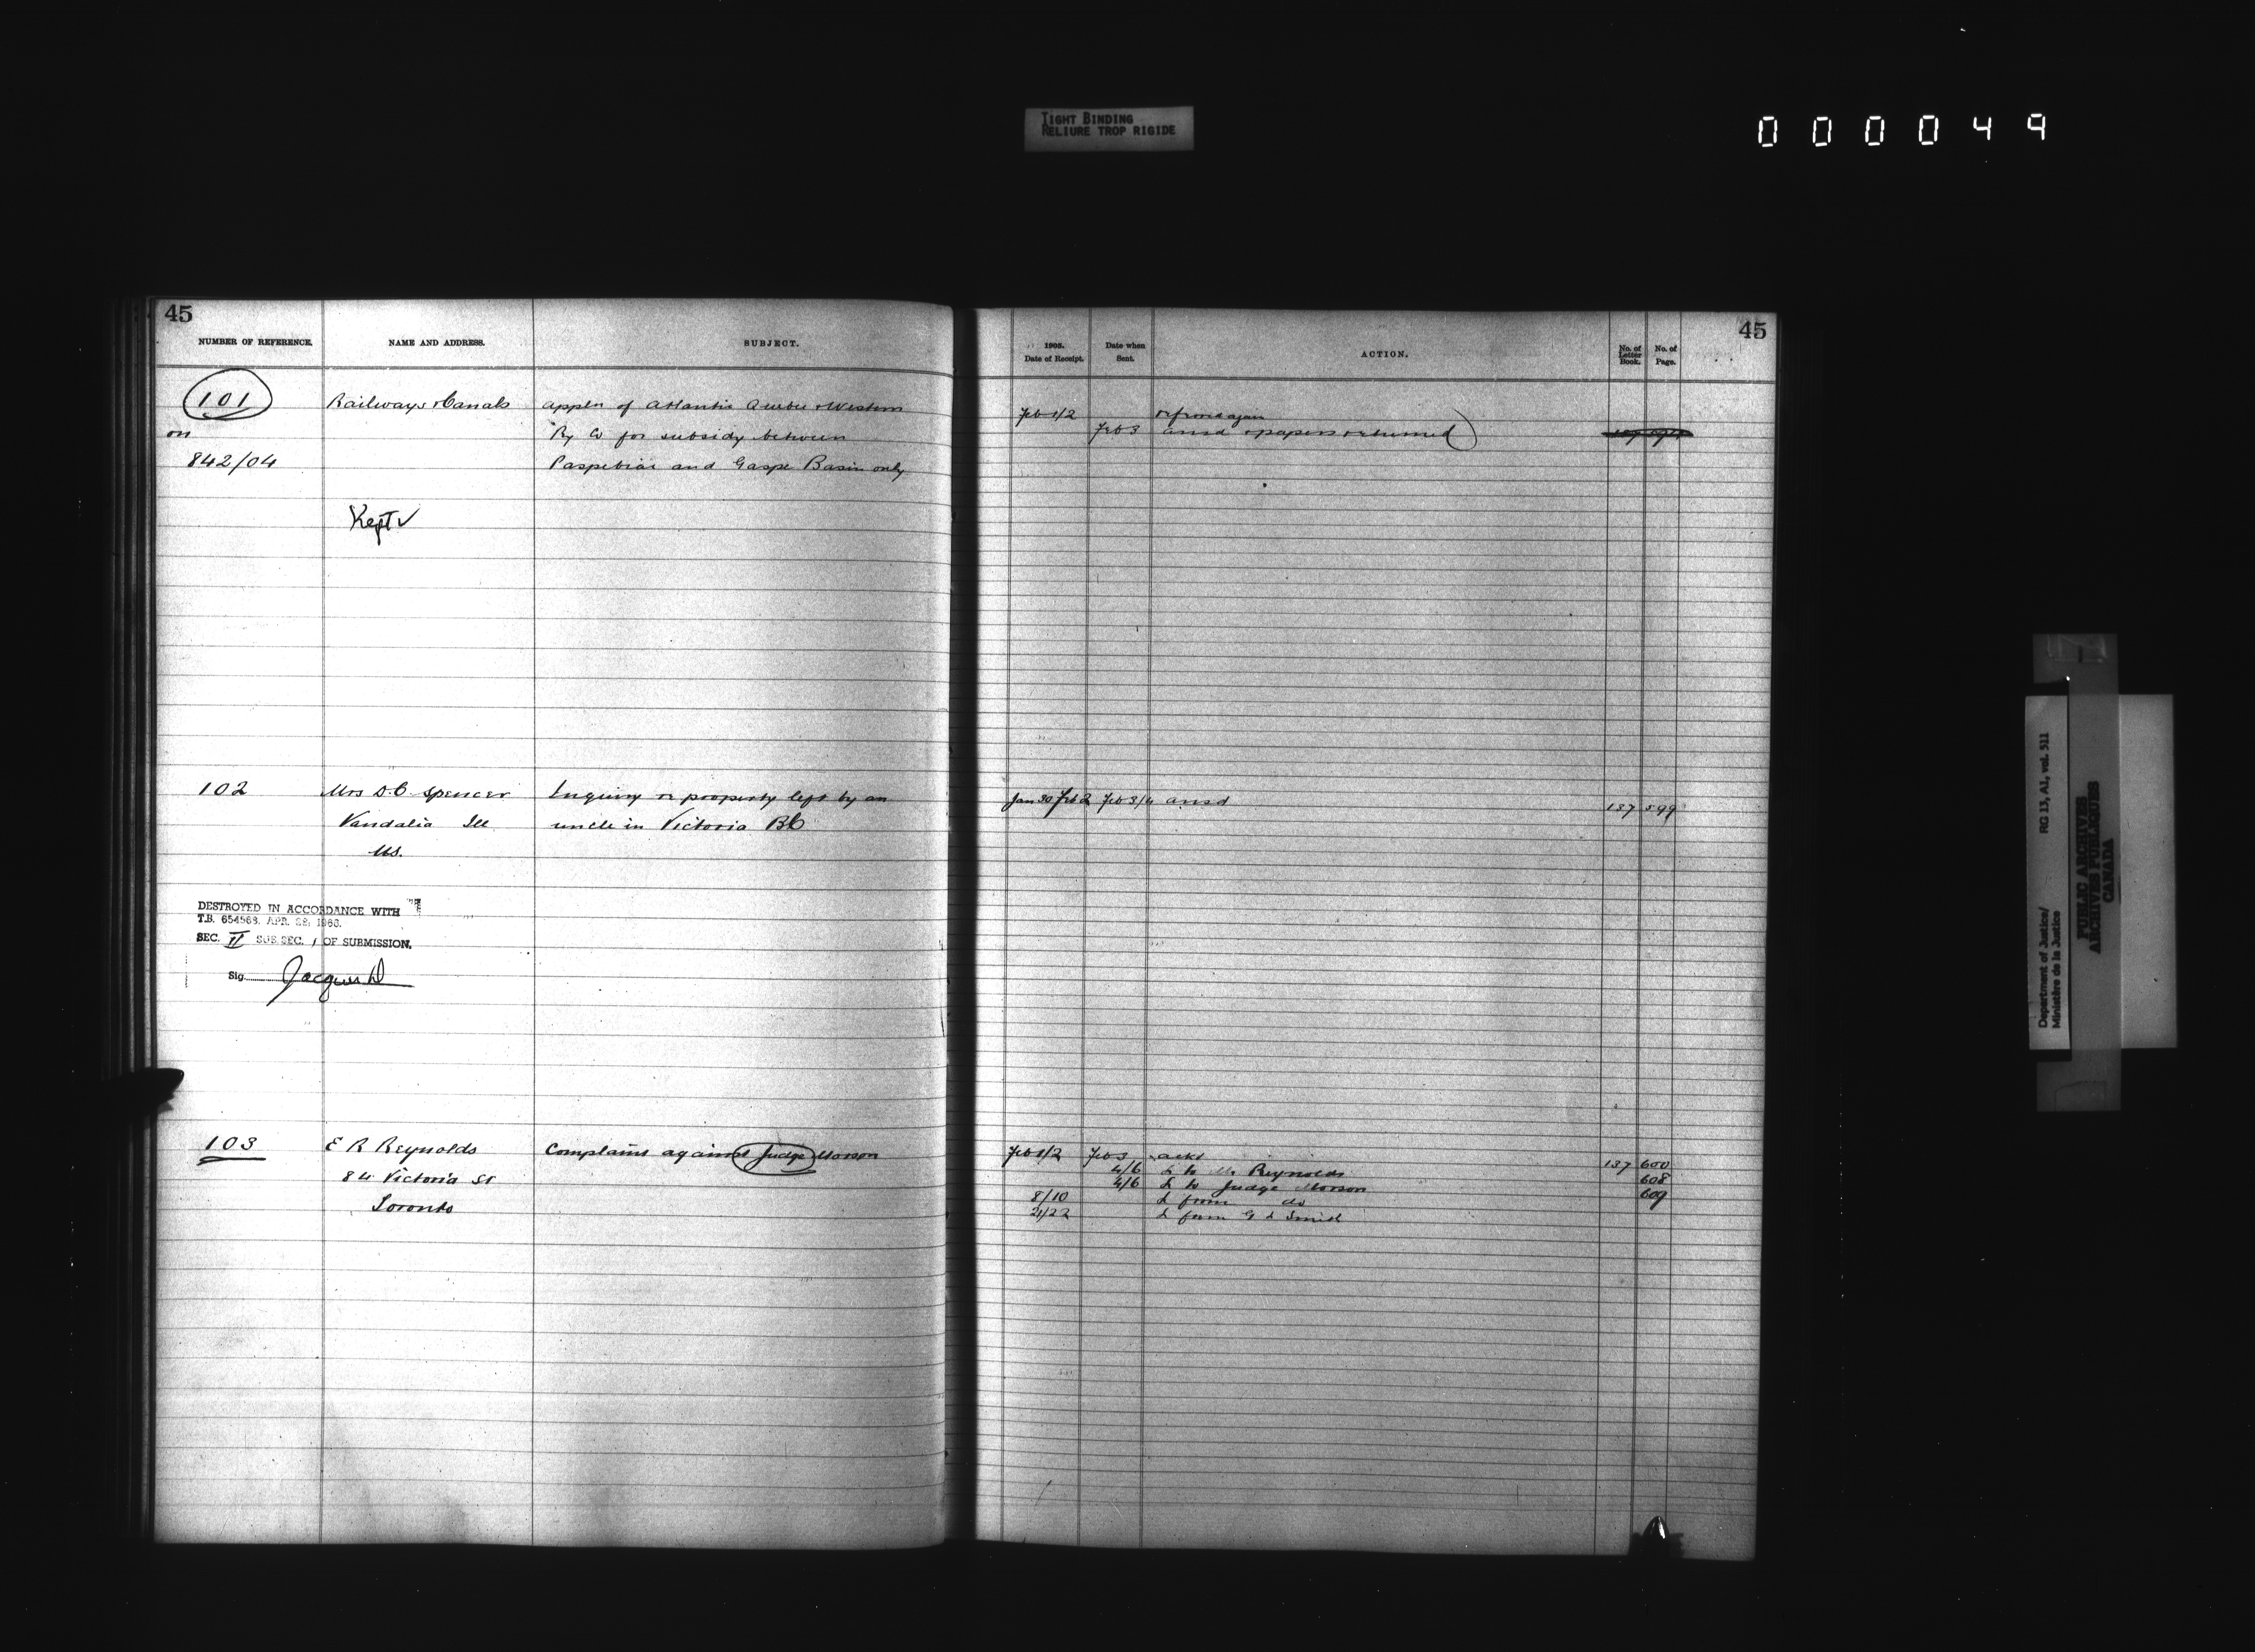 TIGHT BINDING
RELIURE TROP RIGIDE
000049
45
NUMBER OF REFERENCE.
NAME AND ADDRESS.
SUBJECT.
101
on
842/04
Railways & Canals
Kept ✓
appln of Atlantic Quebec & Western
Ry Co for subsidy between
Paspebiac and Gaspe Basin only
102
Mrs D.C. Spencer
Vandalia Ill
US.
Inquiry re property left by an
uncle in Victoria BC
DESTROYED IN ACCORDANCE WITH
T.B. 654563. APR. 29, 1966.
SEC. II SUB.SEC. 1 OF SUBMISSION.
Sig.
103
E R Reynolds
84 Victoria St
Toronto
Complaint against Judge Morson
45
1905.
Date of Receipt.
Date when
Sent.
ACTION.
No. of
Letter
Book.
No. of
Page.
Feb 1/2
Feb 3 ansd & papers returned
Jan 30 Feb 2 Feb 3/4 ansd 137 599
Feb 1/2 Feb 3 ackd 137 600
4/6 L to Mr Reynolds 608
4/6 L to Judge Morson 609
8/10 L from do
21/22 L from G L Smith
Department of Justice/
Ministère de la Justice
RG 13, A1, vol. 511
PUBLIC ARCHIVES
ARCHIVES PUBLIQUES
CANADA